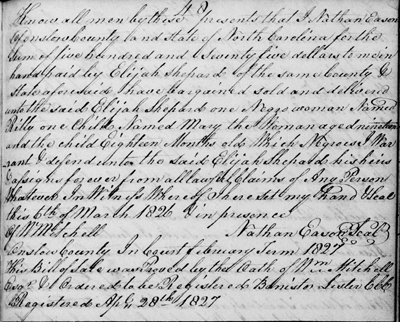 48
Know all men by these presents that I Nathan Eason
of Onslow County and State of North Carolina for the
Sum of five hundred and twenty five dollars to me in
hand paid by Elijah Shepard of the same County &
State aforesaid have bargained sold and delivered
unto the said Elijah Shepard one Negro woman Named
Milly one Child Named Mary the Woman aged nineteen
and the child Eighteen Months old which Negroes I War
rant & defend unto the said Elijah Shepard his heirs
& assigns forever from all lawful Claims of Any Person
Whatever In Witness Whereof I here set my hand & Seal
this 6th of March 1826 In presence
of Wm Mitchell Nathan Eason Seal
Onslow County In Court February Term 1827
This Bill of sale was Proved by the Oath of Wm Mitchell
Esqr & Ordered to be Registered Banister Lester CCC
Registered Apl 28th 1827